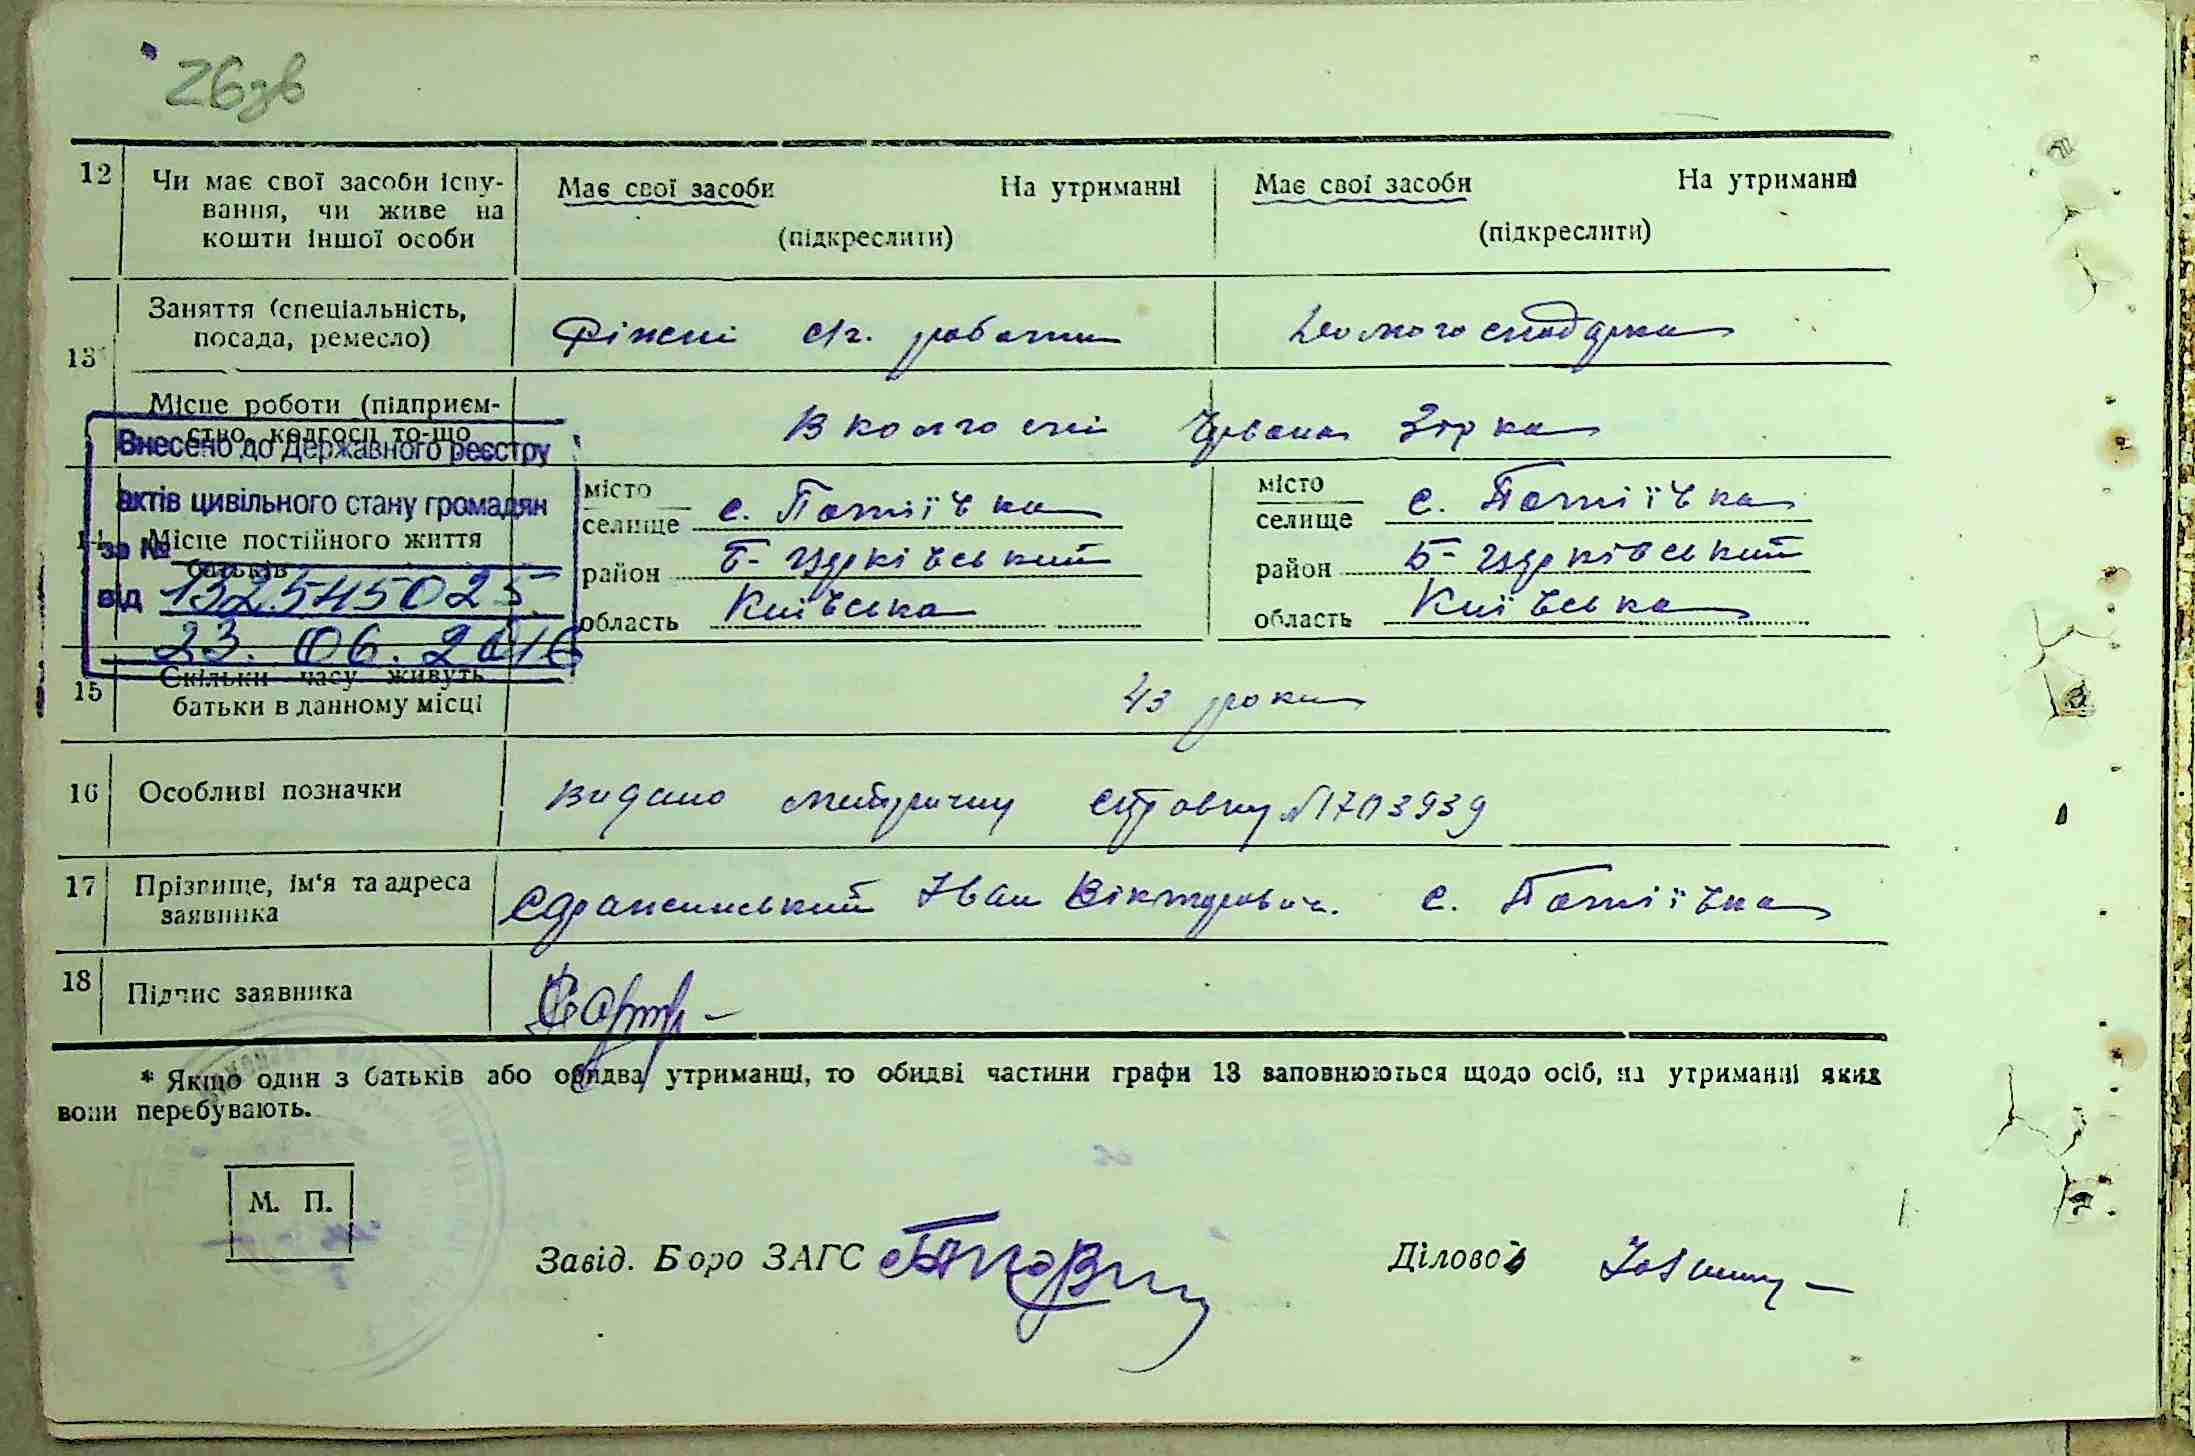 26зв
12 Чи має свої засоби існу- Має свої засоби На утриманні Має свої засоби На утриманні
вання, чи живе на
кошти іншої особи (підкреслити) (підкреслити)
13 Заняття (спеціальність,
посада, ремесло) Ріжні с/г. роботи Домогосподарка
Місце роботи (підприєм-
ство, колгосп то-що В колгоспі Червона Зірка
Внесено до Державного реєстру
актів цивільного стану громадян
за №
від 132545025
23. 06. 2016
14 Місце постійного життя
батьків
місто
селище с. район Б-Церківський
область Київська
місто
селище с. район Б-Церківський
область Київська
15 Скільки часу живуть
батьки в данному місці 43 роки
16 Особливі позначки Видано метричну № 1703939
17 Прізвище, ім'я та адреса
заявника Іван Вікторович. с.
18 Підпис заявника
* Якщо один з батьків або обидва утриманці, то обидві частини графи 13 заповнюються щодо осіб, на утриманні яких
вони перебувають.
М. П.
Завід. Боро ЗАГС Діловод